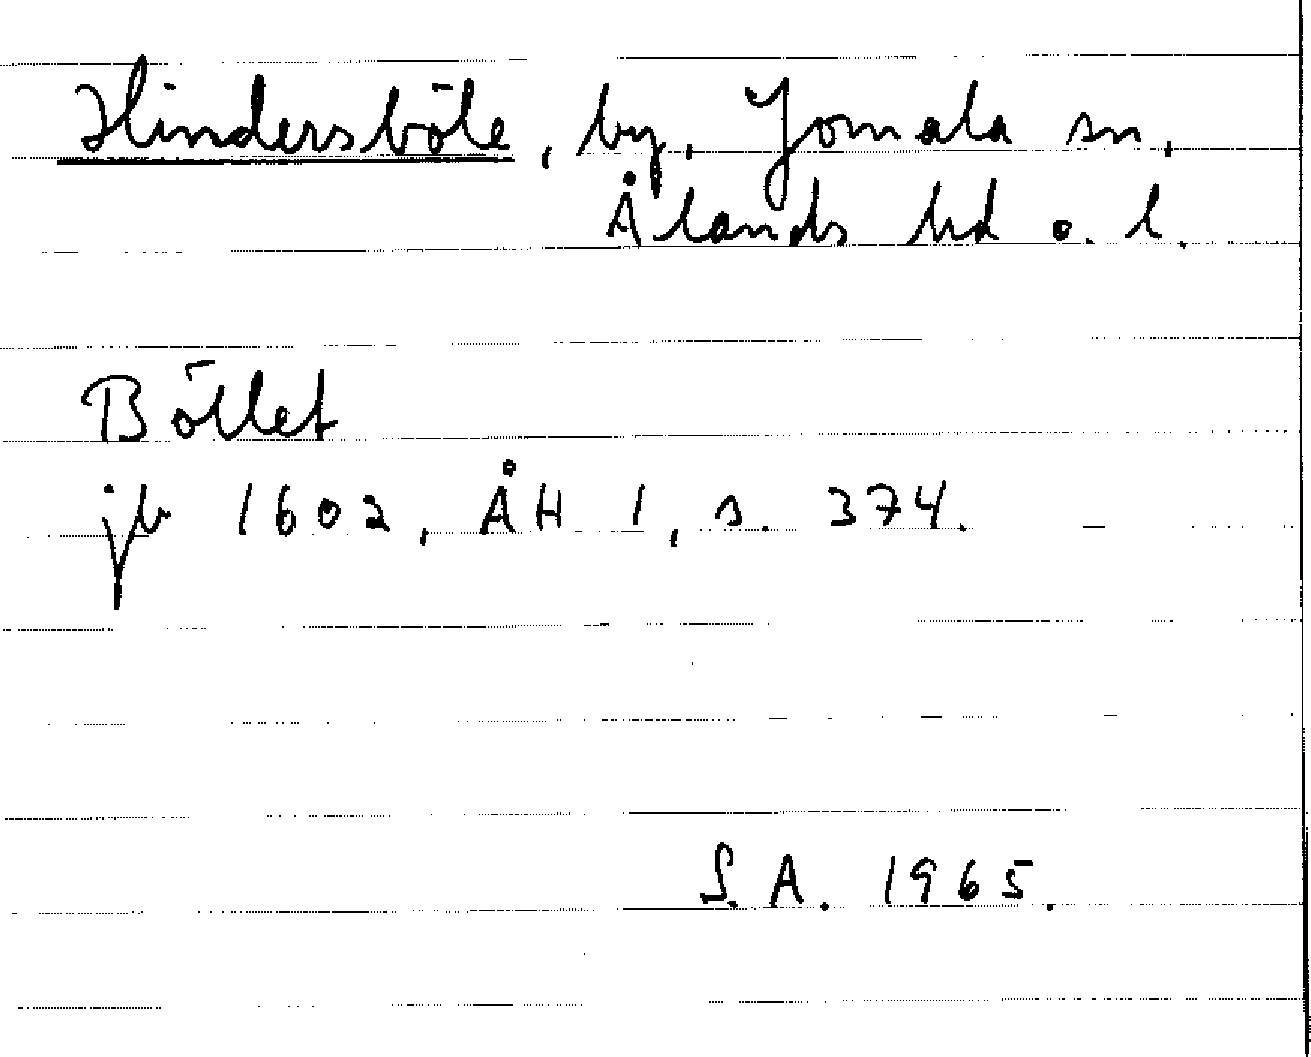 Hindersböle, by, Jomala sn,
Ålands hd o. l.
Böllet
jb 1602, ÅH 1, s. 374.
S.A. 1965.